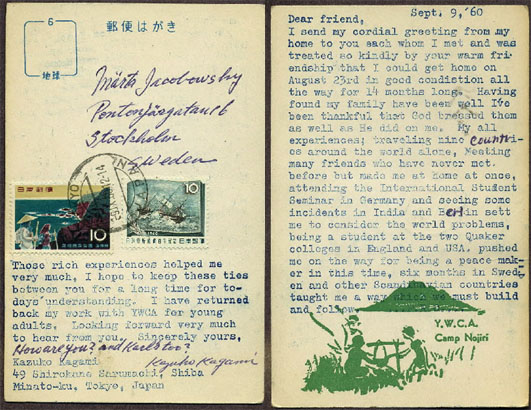 6
地球
郵便はがき
Märta Jacobowsky
Pontonjärgatan 6
Stockholm
Sweden
TOKYO
JAPAN
日本郵便
10
10
Those rich experiences helped me
very much, I hope to keep these ties
between you for a long time for to-
days understanding. I have returned
back my work with YWCA for young
adults. Looking forward very much
to hear from you. Sincerely yours,
How are you? and Karlsbo?
Kazuko Kagami
Kazuko Kagami
49 Shirokane Sarumachi, Shiba
Minato-ku, Tokyo, Japan
Sept. 9,'60
Dear friend,
I send my cordial greeting from my
home to you each whom I met and was
treated so kindly by your warm fri-
endship that I could get home on
August 23rd in good condiction all
the way for 14 months long. Having
found my family have been well I've
been thankful that God blessed them
as well as He did on me. My all
experiences; traveling nine countri-
es around the world alone, Meeting
many friends who have never met
before but made me at Home at once,
attending the International Student
Seminar in Germany and seeing some
incidents in India and Berlin sett
me to consider the world problems,
being a student at the two Quaker
colleges in England and USA, pushed
me on the way for being a peace mak-
er in this time, six months in Swed-
en and other Scandinavian countries
taught me a way which we must build
and follow.
Y.W.C.A.
Camp Nojiri